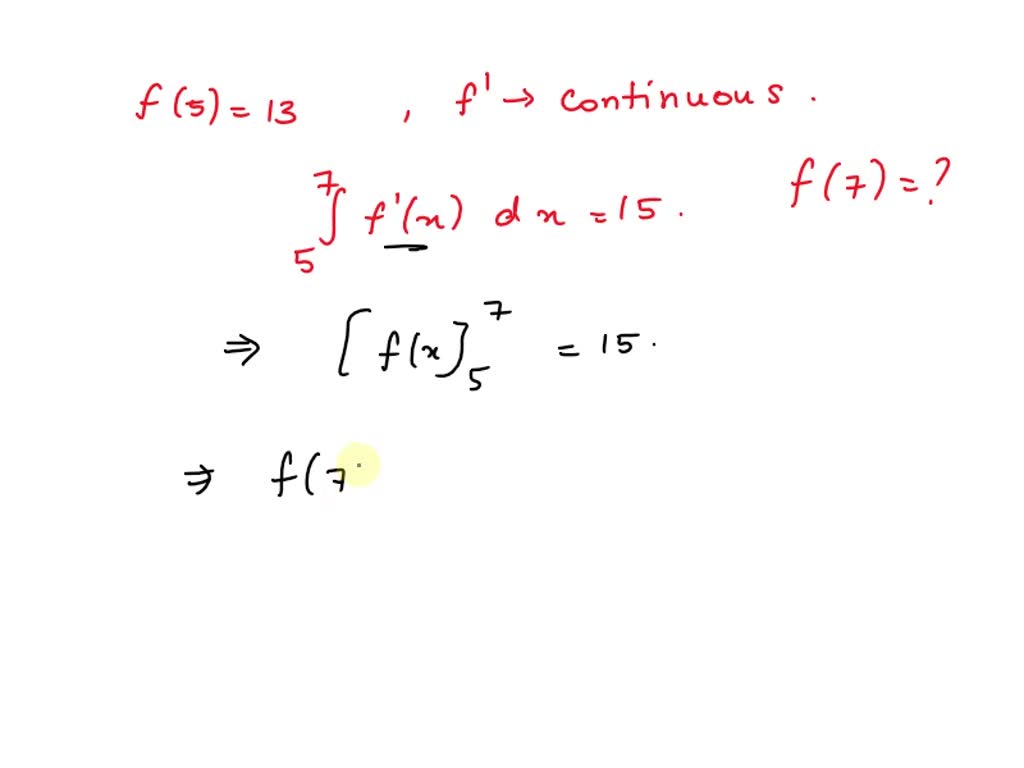 f(5) = 13 , f' → continuous .
∫₅⁷ f'(x) dx = 15 . f(7) = ?
⇒ [f(x)]₅⁷ = 15 .
⇒ f(7